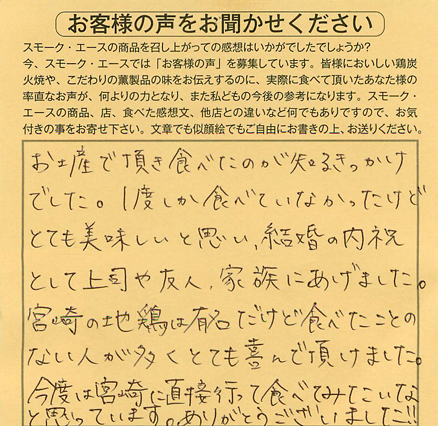 お客様の声をお聞かせください
スモーク・エースの商品を召し上がっての感想はいかがでしたでしょうか?
今、スモーク・エースでは「お客様の声」を募集しています。皆様においしい鶏炭
火焼や、こだわりの薫製品の味をお伝えするのに、実際に食べて頂いたあなた様の
率直なお声が、何よりの力となり、また私どもの今後の参考になります。スモーク・
エースの商品、店、食べた感想文、他店との違いなど何でもありですので、お気
付きの事をお寄せ下さい。文章でも似顔絵でもご自由にお書きの上、お送りください。
お土産で頂き食べたのが知るきっかけ
でした。1度しか食べていなかったけど
とても美味しいと思い、結婚の内祝
として上司や友人、家族にあげました。
宮崎の地鶏は有名だけど食べたことの
ない人が多くとても喜んで頂けました。
今度は宮崎に直接行って食べてみたいな
と思っています。ありがとうございました!!